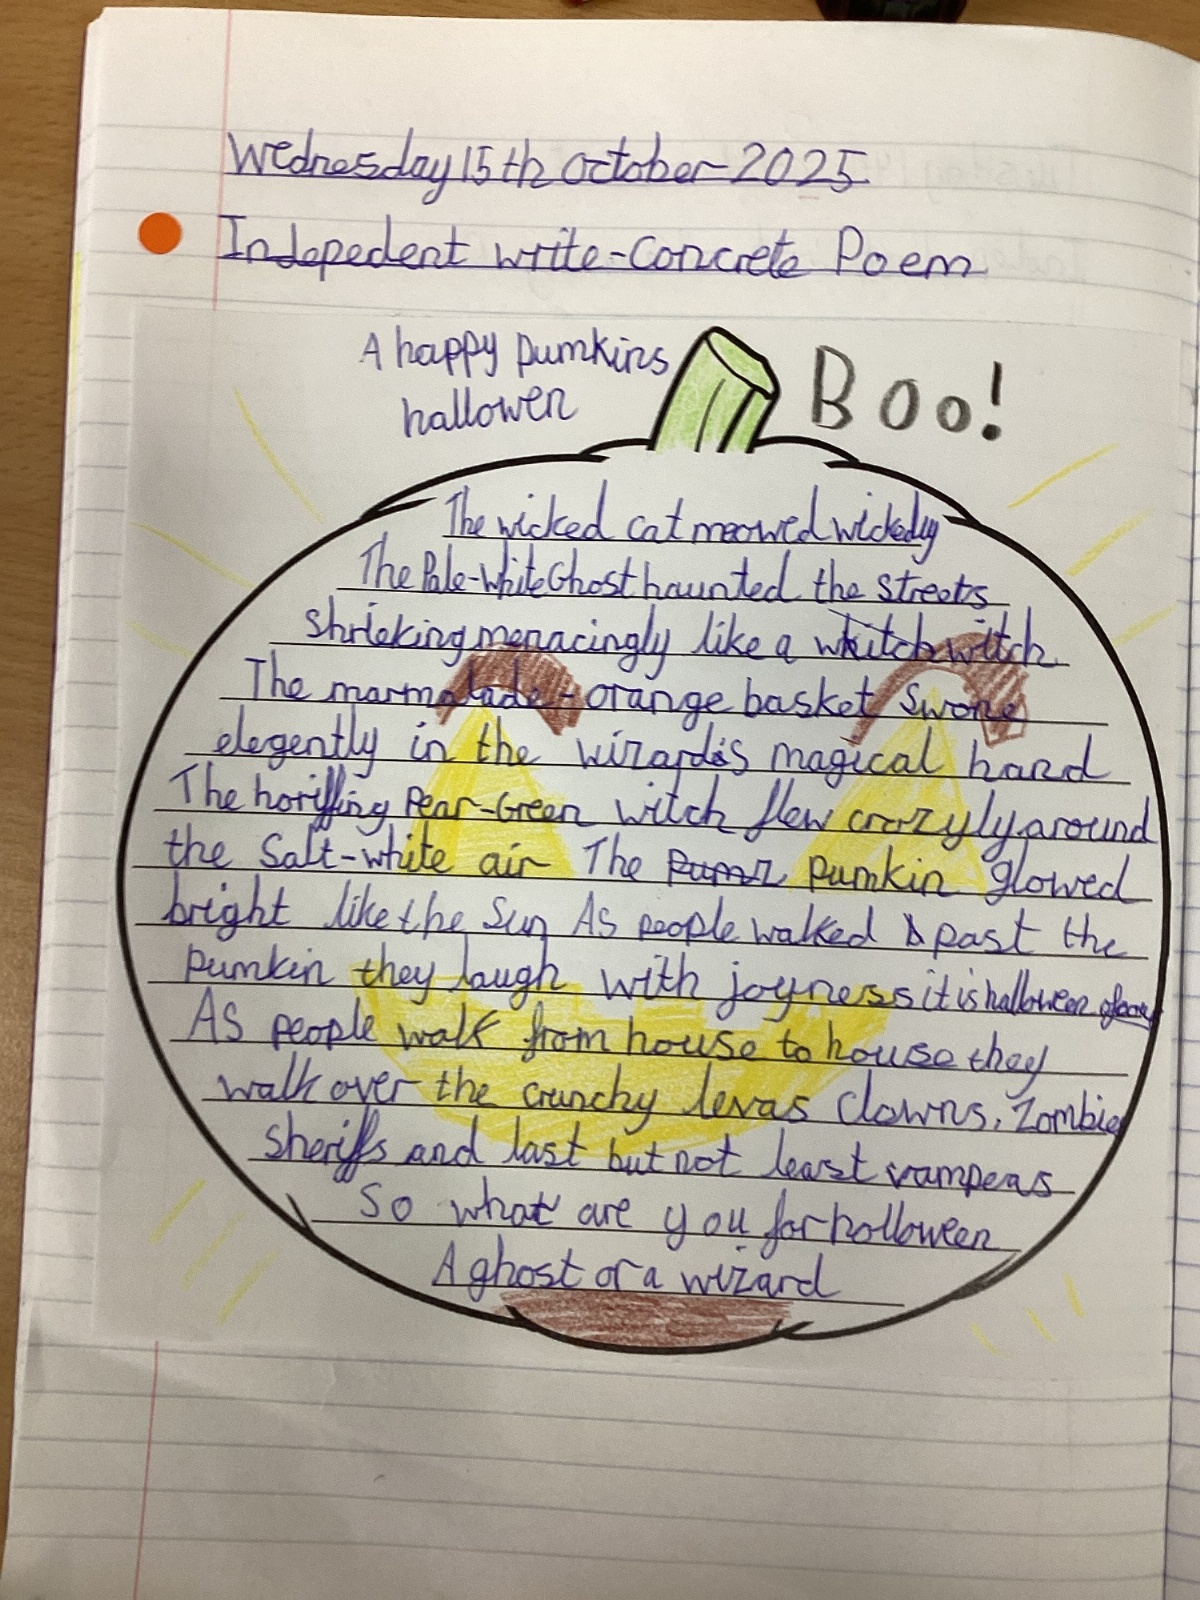 Wednesday 15th October 2025
Indepedent write-Concrete Poem
A happy pumkins
hallowen
Boo!
The wicked cat meowed wickedly
The Pale-white Ghost haunted the streets
shrieking menacingly like a witch
The marmalade-orange basket swone
elegently in the wizards magical hand
The horiffing Pear-Green witch flew crazyly around
the Salt-white air The pumkin glowed
bright like the Sun As people walked past the
pumkin they laugh with joyness it is halloween
As people walk from house to house they
walk over the crunchy levas clowns, Zombie
sheriffs and last but not least vampeas
So what are you for holloween
A ghost or a wizard